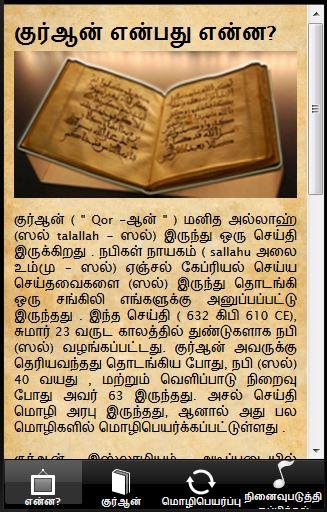 குர்ஆன் என்பது என்ன?
குர்ஆன் ( " Qor -ஆன் " ) மனித அல்லாஹ்
(ஸல் talallah - ஸல்) இருந்து ஒரு செய்தி
இருக்கிறது . நபிகள் நாயகம் ( sallahu அலை
உம்மு - ஸல்) ஏஞ்சல் கேப்ரியல் செய்ய
செய்தவைகளை (ஸல்) இருந்து தொடங்கி
ஒரு சங்கிலி எங்களுக்கு அனுப்பப்பட்டு
இருந்தது . இந்த செய்தி ( 632 கிபி 610 CE),
சுமார் 23 வருட காலத்தில் துண்டுகளாக நபி
(ஸல்) வழங்கப்பட்டது. குர்ஆன் அவருக்கு
தெரியவந்தது தொடங்கிய போது, நபி (ஸல்)
40 வயது , மற்றும் வெளிப்பாடு நிறைவு
போது அவர் 63 இருந்தது. அசல் செய்தி
மொழி அரபு இருந்தது, ஆனால் அது பல
மொழிகளில் மொழிபெயர்க்கப்பட்டுள்ளது .
குர்ஆன் இஸ்லாமியம் அடிப்படையில்
என்ன?
குர்ஆன்
மொழிபெயர்ப்பு
நினைவுபடுத்தி